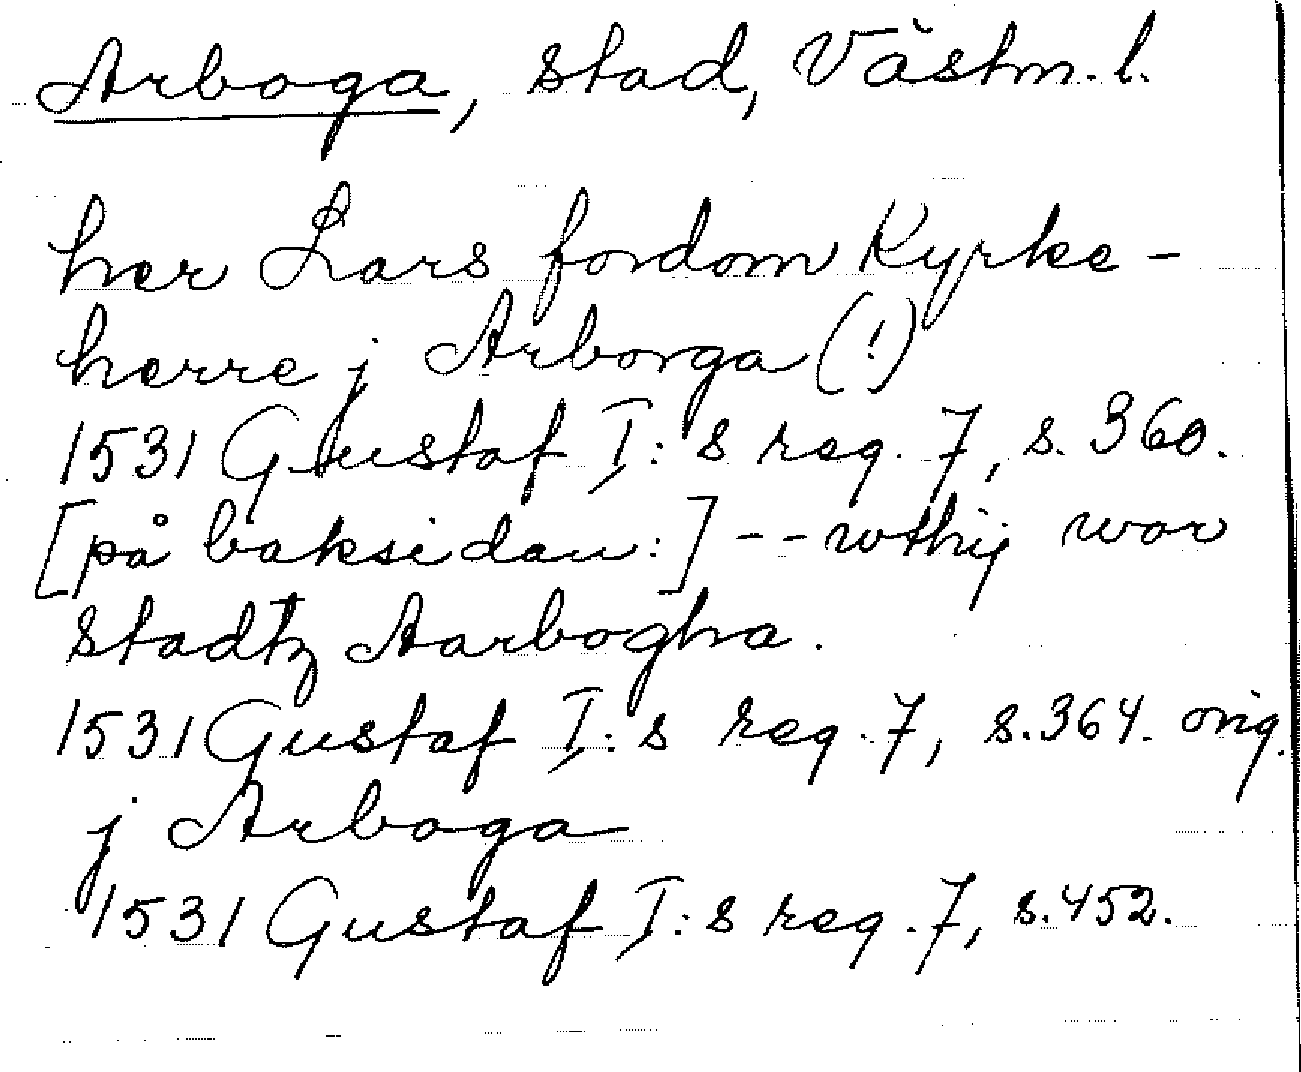 Arboga, stad, Västm. l.
her Lars fordom Kyrke-
herre j Arborga (!)
1531 Gustaf I:s reg. 7, s. 360.
[på baksidan:] -- wthij wor
stadtz Aarbogha.
1531 Gustaf I:s reg. 7, s. 364. orig.
j Arboga
1531 Gustaf I:s reg. 7, s. 452.